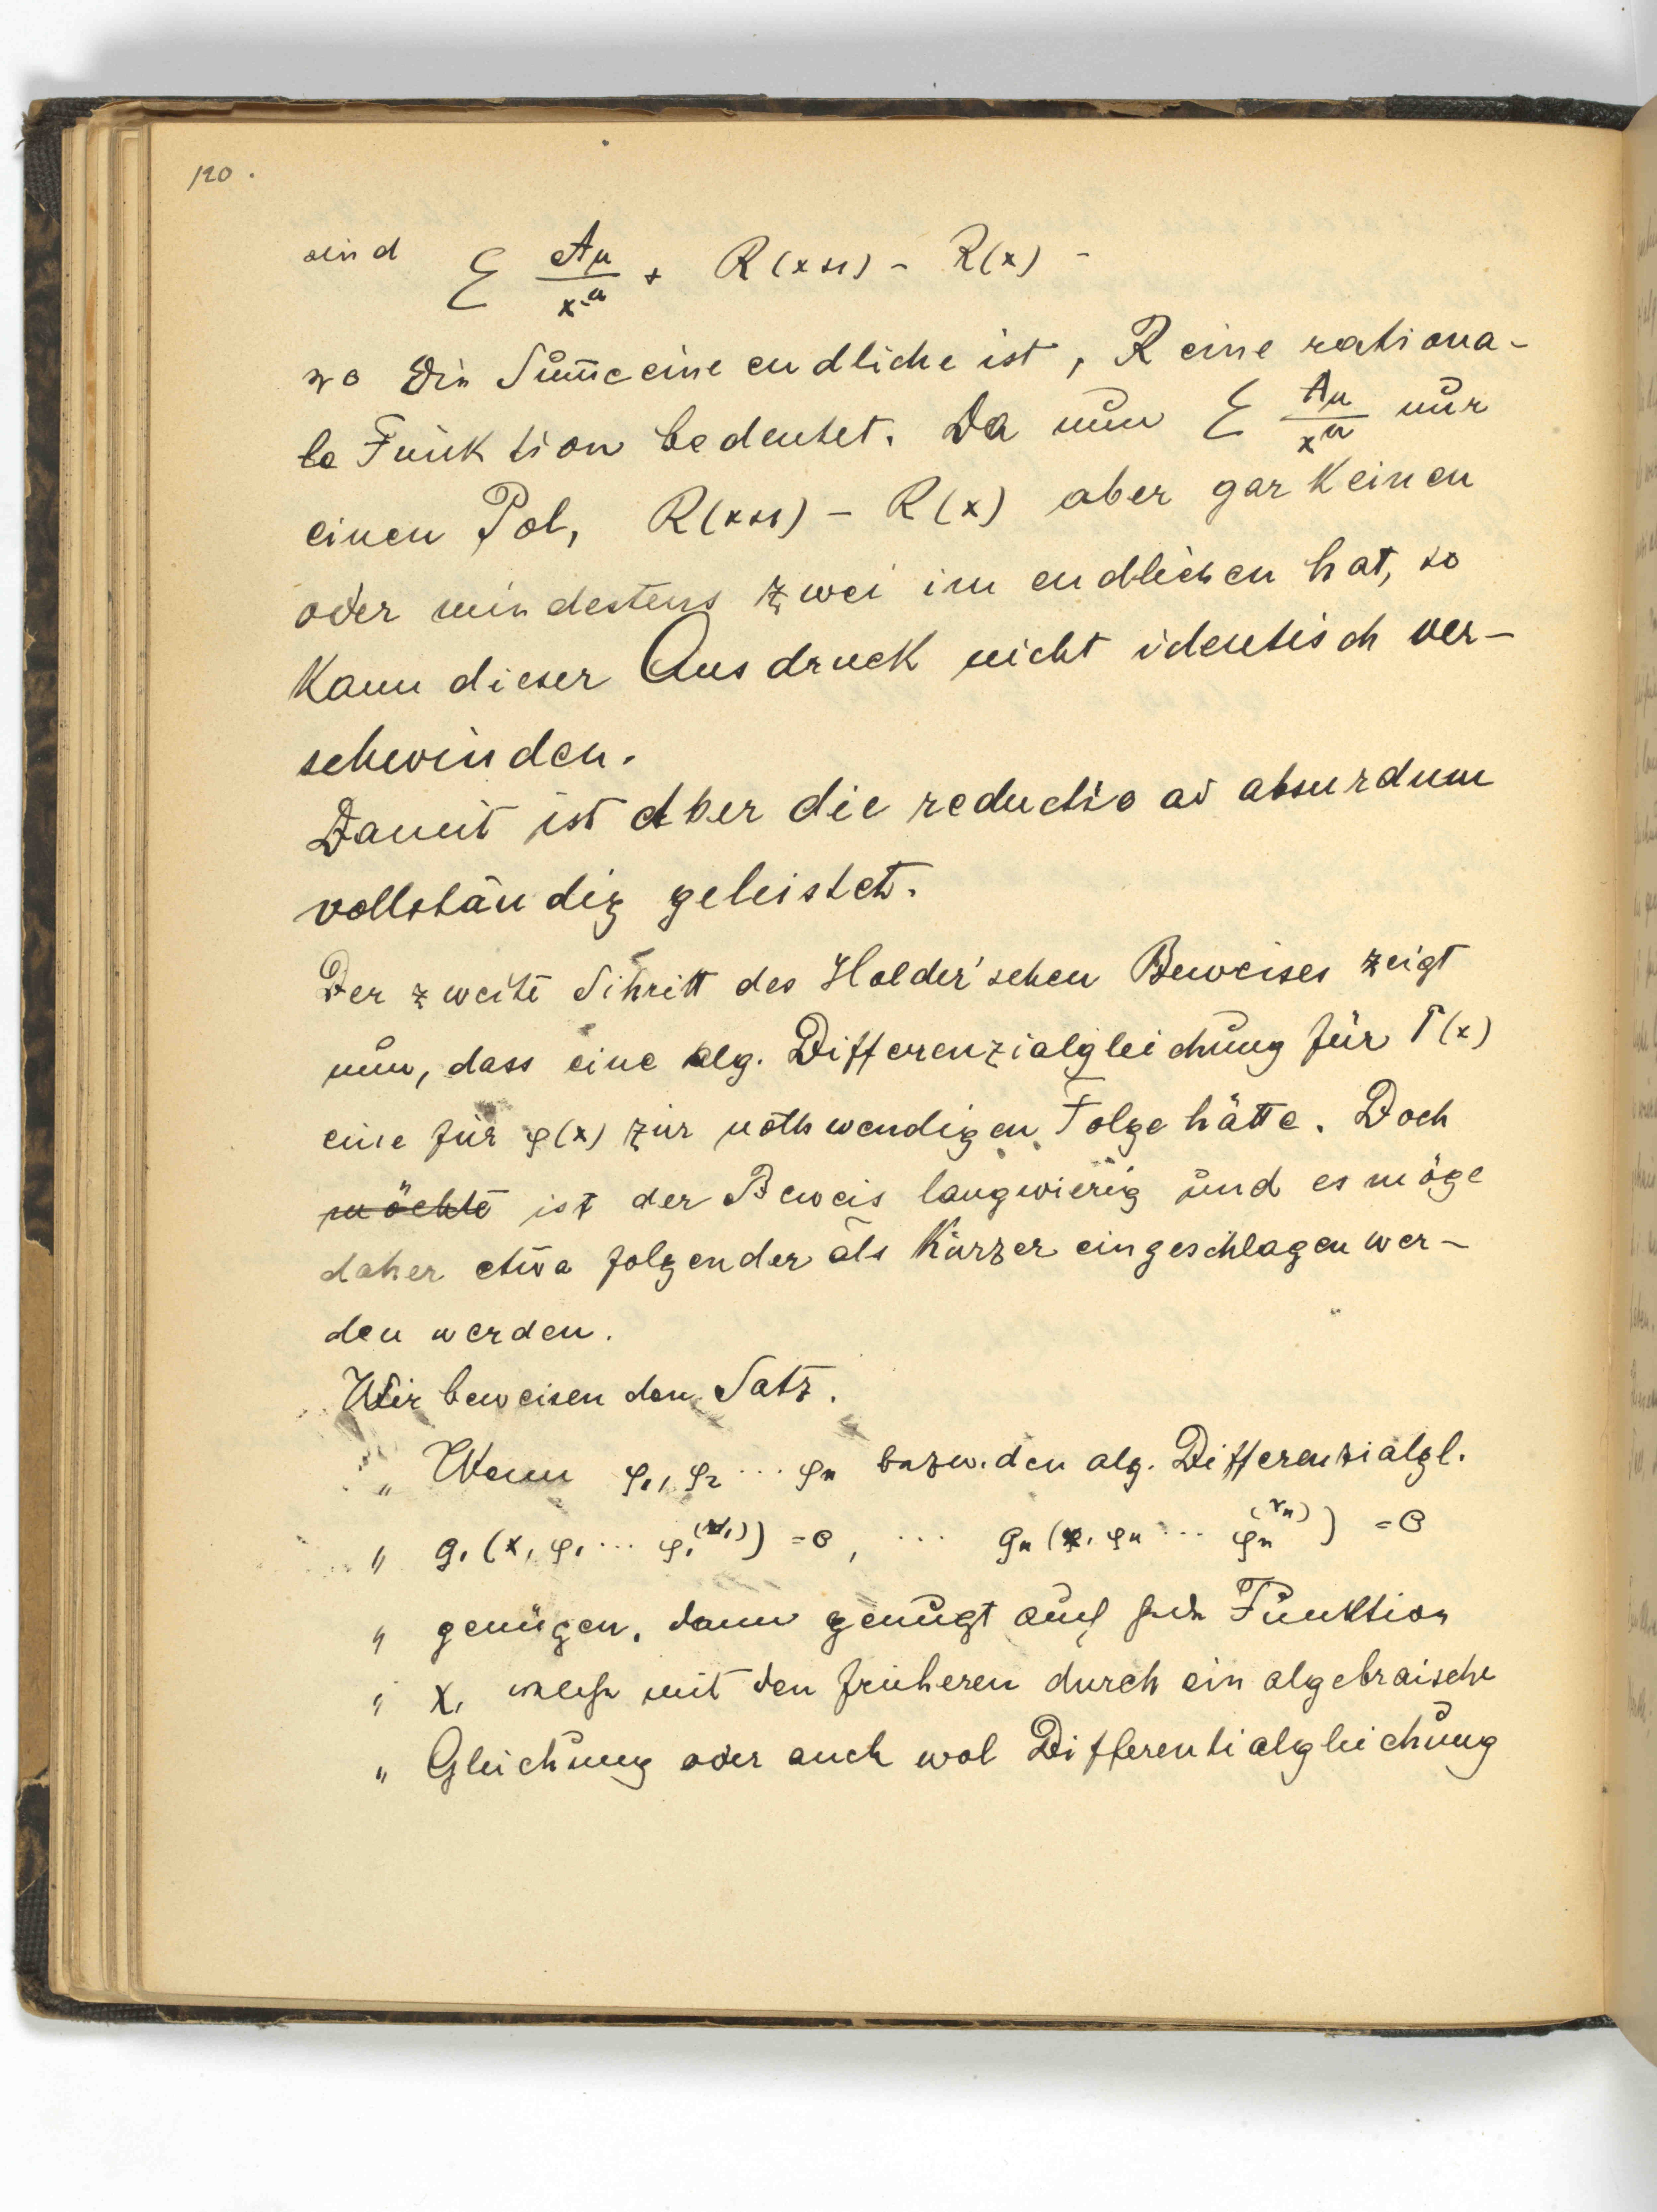 120.
sind Σ Aμ/x^μ + R(x+1) - R(x) -
wo die Sum̄e eine endliche ist, R eine rationa-
le Funktion bedeutet. Da nun Σ Aμ/x^μ nur
einen Pol, R(x+1) - R(x) aber gar keinen
oder mindestens zwei im endlichen hat, so
kann dieser Ausdruck nicht identisch ver-
schwinden.
Damit ist aber die reductio ad absurdum
vollständig geleistet.
Der zweite Schritt des Holder'schen Beweises zeigt
nun, dass eine alg. Differenzialgleichung für Γ(x)
eine für φ(x) zur nothwendigen Folge hätte. Doch
möchte ist der Beweis langwierig und es möge
daher etwa folgender als kürzer eingeschlagen wer-
den werden.
Wir beweisen den Satz.
„ Wenn φ₁, φ₂ ... φn bezw. den alg. Differenzialgl.
„ g₁(x, φ₁ ... φ₁^(r₁)) = 0, ... gn(x, φn ... φn^(rn)) = 0
„ genügen, dann genügt auch jede Funktion
„ χ, welche mit den früheren durch ein algebraische
„ Gleichung oder auch wol Differentialgleichung